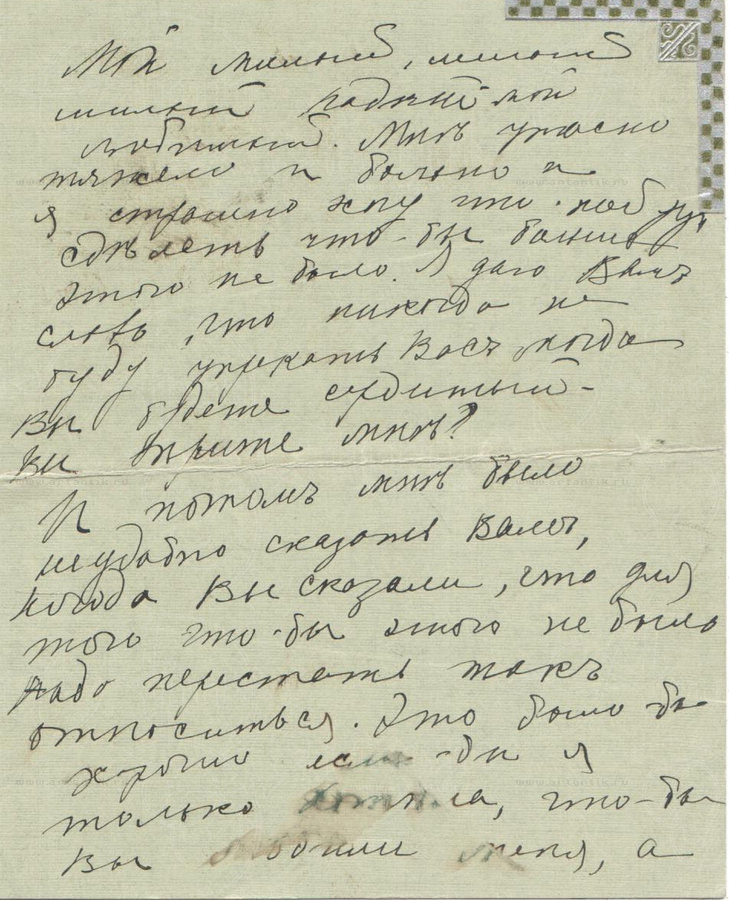 Мой милый, милый
милый родной мой
любимый. Мнѣ ужасно
тяжело и больно и
я страшно хочу что-нибудь
сдѣлать что-бы больше
этого не было. Я даю Вамъ
слово, что никогда не
буду упрекать Васъ, когда
Вы будете сердитый -
Вы верите мнѣ?
И потомъ мнѣ было
неудобно сказать Вамъ,
когда Вы сказали, что для
того что-бы этого не было
надо перестать такъ
относиться. Это было-бы
хорошо если-бы я
только хотѣла, что-бы
Вы любили меня, а